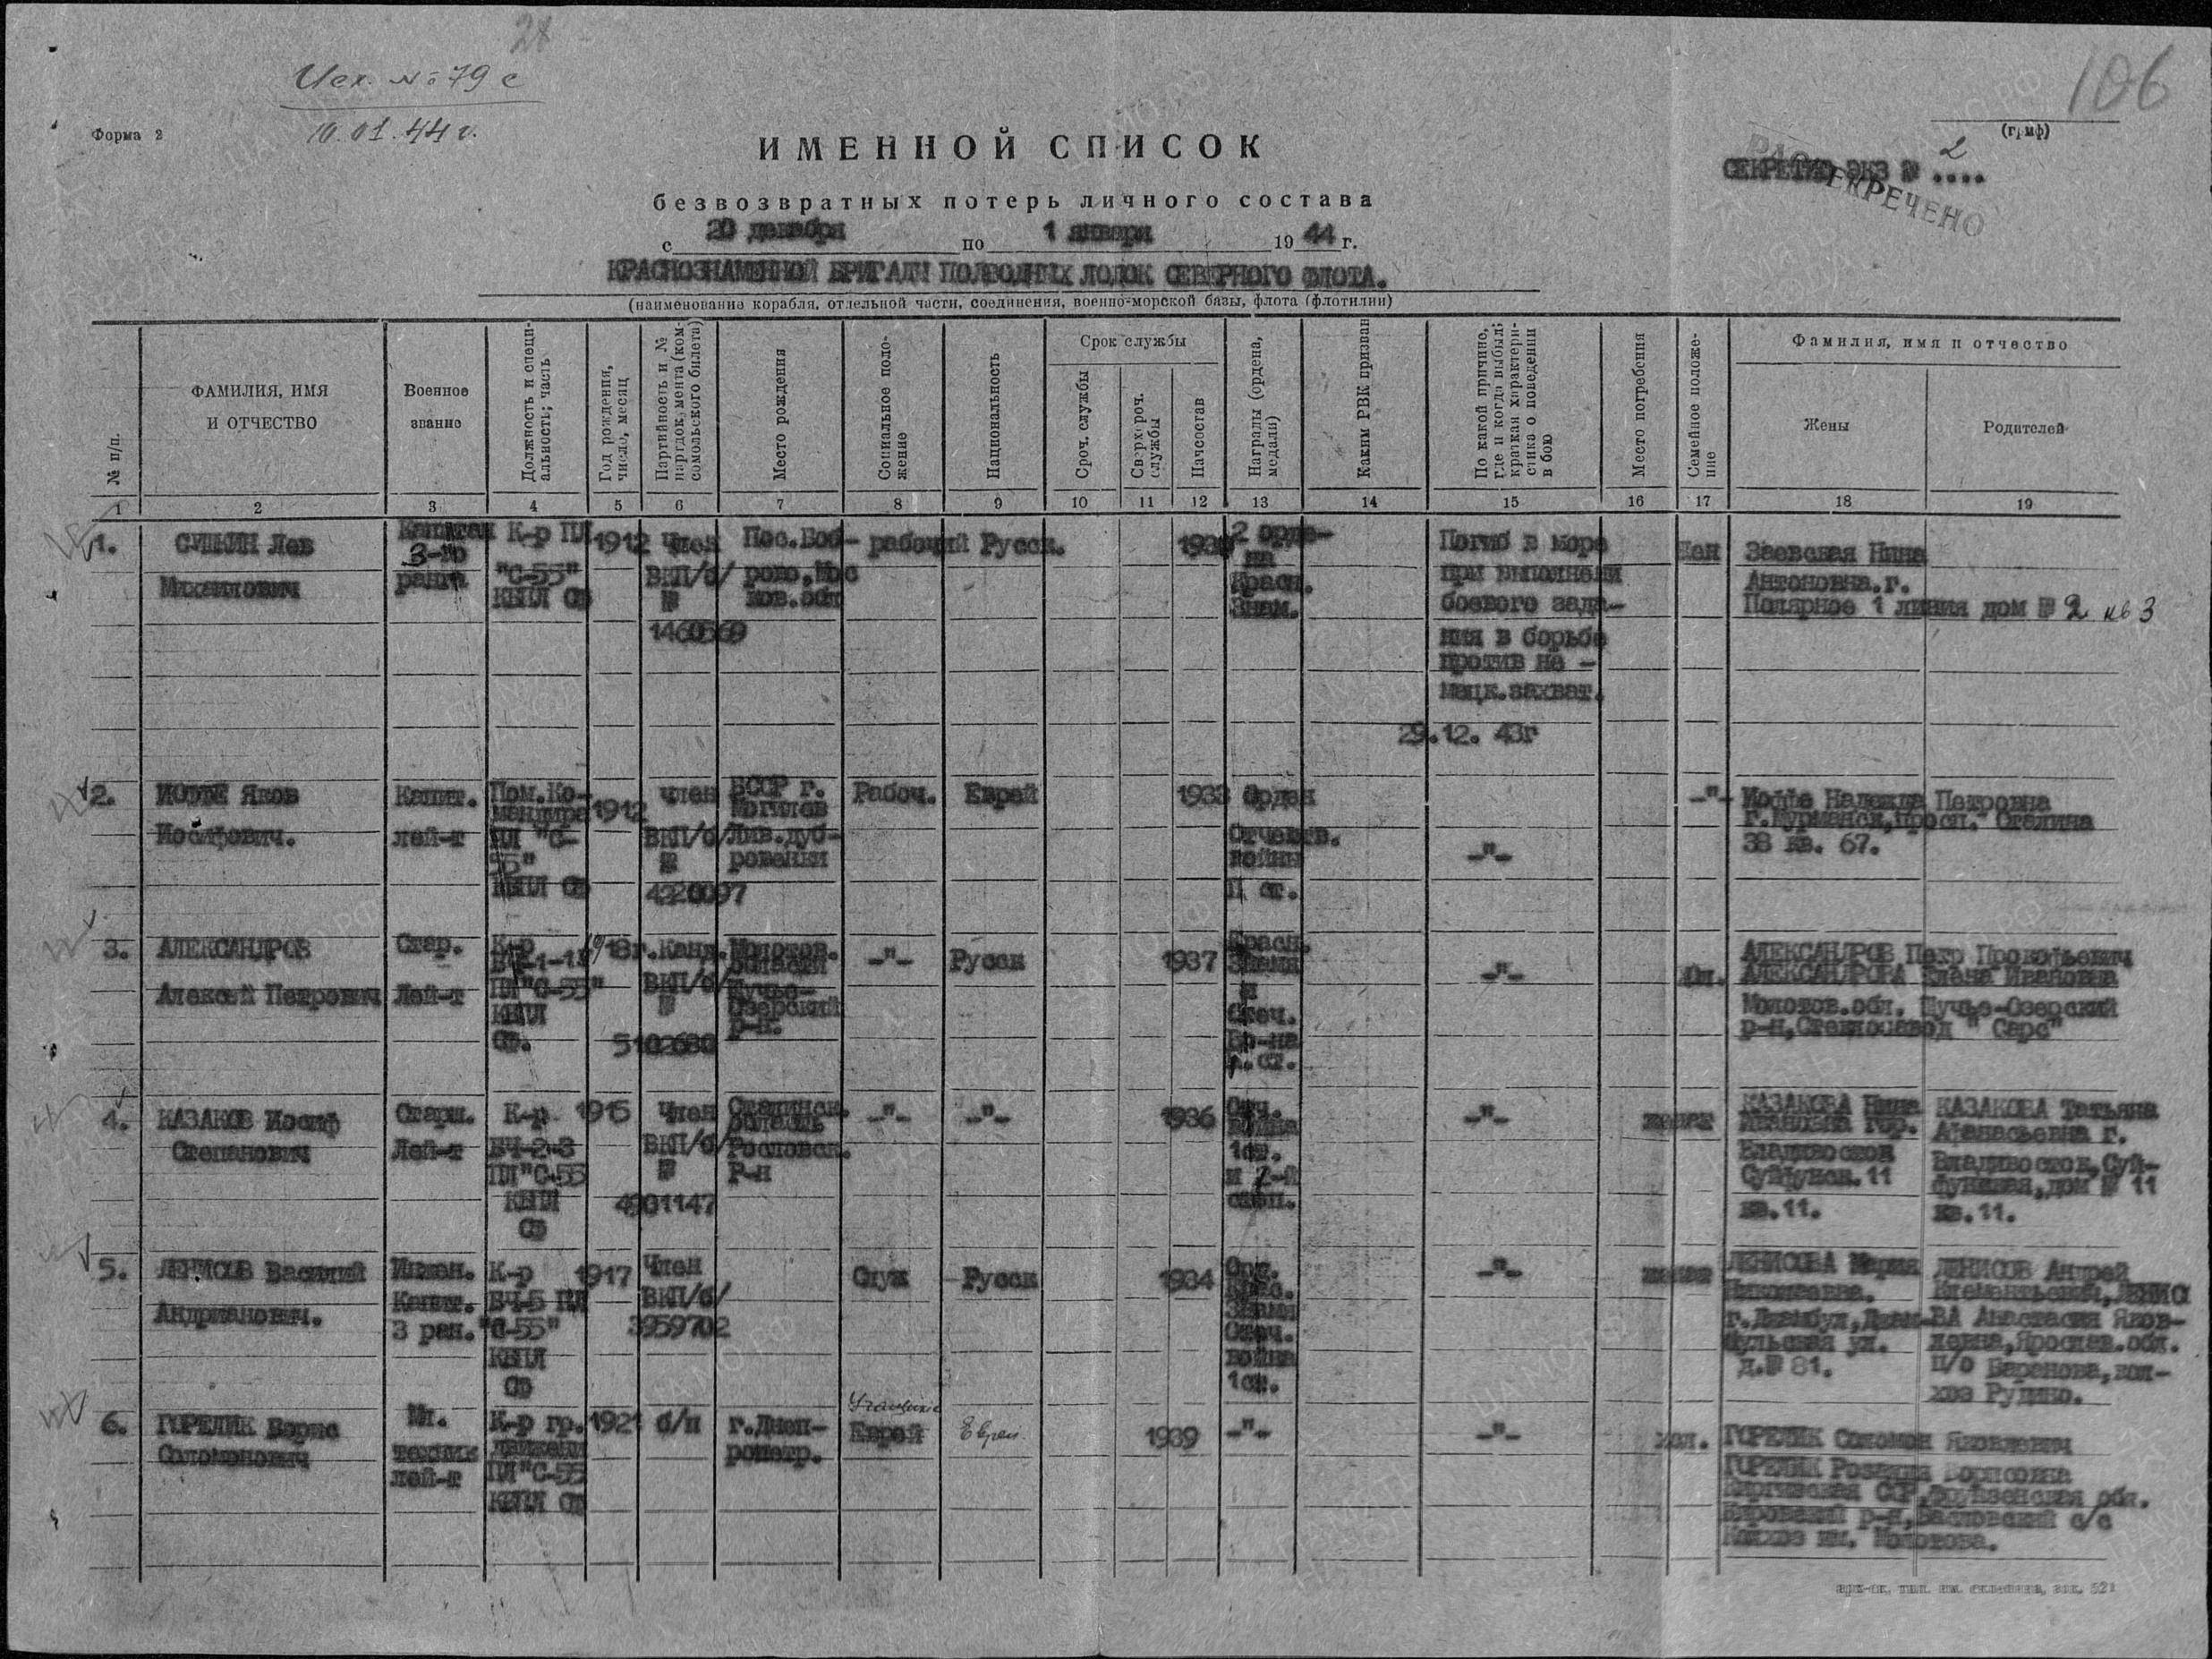 28
Исх. № 79 с
10.01.44 г.
106
Форма 2
(гриф)
ИМЕННОЙ СПИСОК
СЕКРЕТНО ЭКЗ № 2
РАССЕКРЕЧЕНО
безвозвратных потерь личного состава
с 20 декабря по 1 января 1944 г.
КРАСНОЗНАМЕННОЙ БРИГАДЫ ПОДВОДНЫХ ЛОДОК СЕВЕРНОГО ФЛОТА.
(наименование корабля, отдельной части, соединения, военно-морской базы, флота (флотилии)
№ п/п.
ФАМИЛИЯ, ИМЯ
И ОТЧЕСТВО
Военное
звание
Должность и специ-
альность; часть
Год рождения,
число, месяц
Партийность и №
партдокумента (ком-
сомольского билета)
Место рождения
Социальное поло-
жение
Национальность
Срок службы
Сроч. службы
Сверхсроч.
службы
Начсостав
Награды (ордена,
медали)
Каким РВК призван
По какой причине,
где и когда выбыл;
краткая характери-
стика о поведении
в бою
Место погребения
Семейное положе-
ние
Фамилия, имя и отчество
Жены
Родителей
1 2 3 4 5 6 7 8 9 10 11 12 13 14 15 16 17 18 19
1.
СУШКИН Лев
Михайлович
Капитан
3-го
ранга
К-р ПЛ
"С-55"
КБПЛ СФ
1912
Член
ВКП/б/
№
1460569
Пос.Боб-
рово, Мос
ков.обл
рабочий
Русск.
2 орде-
на
Красн.
Знам.
Погиб в море
при выполнени
боевого зада-
ния в борьбе
против не -
мецк.захват.
29.12. 43г
Жен
Заевская Нина
Антоновна.г.
Полярное 1 линия дом № 2 кв 3
2.
ИОФФЕ Яков
Иосифович.
Капит.
лей-т
Пом.Ко-
мандира
ПЛ "С-
55"
КБПЛ СФ
1912
член
ВКП/б/
№
4220097
БССР г.
Могилев
Рабоч.
Еврей
1933
Орден
Отчеств.
войны
П ст.
-"-
-"-
Иоффе Надежда Петровна
г.Мурманск,просп. Сталина
38 кв. 67.
3.
АЛЕКСАНДРОВ
Алексей Петрович
Стар.
Лей-т
К-р
БЧ-1-1У
ПЛ"С-55"
КБПЛ
СФ.
1918г.
Канд.
ВКП/б/
№
5102680
Молотов.
области
Щучье-
Озерский
р-н.
-"-
Русск
1937
Красн.
Знамя
и
Отеч.
-"-
Хол.
АЛЕКСАНДРОВ Петр Прокофьевич
АЛЕКСАНДРОВА Елена Ивановна
Молотов.обл. Щучье-Озерский
р-н,Стеклозавод " Сарс"
4.
КАЗАКОВ Иосиф
Степанович
Старш.
Лей-т
К-р
БЧ-2-3
ПЛ"С-55
КБПЛ
СФ
1915
Член
ВКП/б/
№
4901147
Сталинск.
область
Р-н
-"-
-"-
1936
Отч.
война
1ст.
и 2-й
степ.
-"-
женат
КАЗАКОВА Нина
Ивановна гор.
Владивосток
Суйфунск.11
кв.11.
КАЗАКОВА Татьяна
Афанасьевна г.
Владивосток,Суй-
фунская,дом № 11
кв.11.
5.
ДЕНИСОВ Василий
Андрианович.
Инжен.
Капит.
3 ран.
К-р
БЧ-5 ПЛ
"С-55"
КБПЛ
СФ
1917
Член
ВКП/б/
3959702
Служ
Русск
1934
Орд.
Крас.
Знамя
Отеч.
война
1ст.
-"-
женат
ДЕНИСОВА Мария
Николаевна.
г.Джамбул,Джам-
бульская ул.
д.№ 81.
ДЕНИСОВ Андрей
Клементьевич,ДЕНИСО
ВА Анастасия Яков-
левна,Ярослав.обл.
п/о Баранова,кол-
хоз Рудино.
6.
ГОРЕЛИК Борис
Соломонович
Мл.
техник
лей-т
К-р гр.
движени
ПЛ"С-55
КБПЛ СФ
1921
б/п
г.Днеп-
ропетр.
Учащийся
Еврей
Еврей.
1939
-"-
-"-
хол.
ГОРЕЛИК Соломон Яковлевич
ГОРЕЛИК Розалия Борисовна
Киргизская ССР,Фрунзенская обл.
Кировский р-н, с/с
Колхоз им. Молотова.